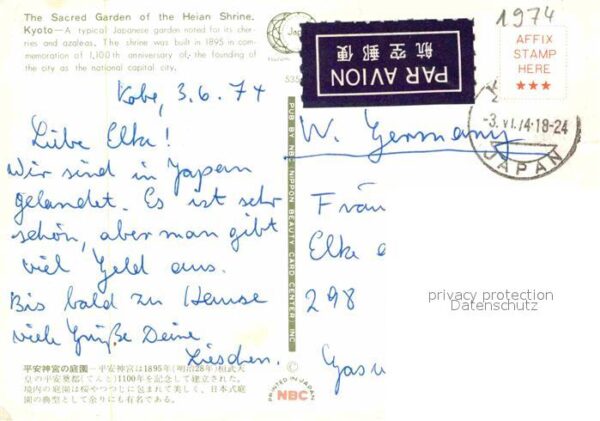 The Sacred Garden of the Heian Shrine.
Kyoto—A typical Japanese garden noted for its cher-
ries and azaleas. The shrine was built in 1895 in com-
memoration of 1,100th anniversary of the founding of
the city as the national capital city.
Kobe, 3.6.74
Liebe Elke!
Wir sind in Japan
gelandet. Es ist sehr
schön, aber man gibt
viel Geld aus.
Bis bald zu Hause
viele Grüße Deine
Lieschen.
平安神宮の庭園—平安神宮は1895年(明治28年)桓武天
皇の平安奠都(てんと)1100年を記念して建立された。
境内の庭園は桜やつつじに包まれて美しく、日本式庭
園の典型として余りにも有名である。
535
PUB BY NBC NIPPON BEAUTY CARD CENTER INC
©
PRINTED IN JAPAN
NBC
航空郵便
PAR AVION
1974
AFFIX
STAMP
HERE
★★★
-3.VI.74.18-24
JAPAN
W. Germany
Fräu
Elke
298
privacy protection
Datenschutz